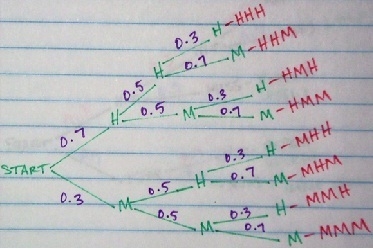 H - HHH
0.3
H
0.7
M - HHM
0.5
H
0.5
M
0.3
H - HMH
0.7
M - HMM
0.7
START
0.3
M
0.5
H
0.3
H - MHH
0.7
M - MHM
0.5
M
0.3
H - MMH
0.7
M - MMM